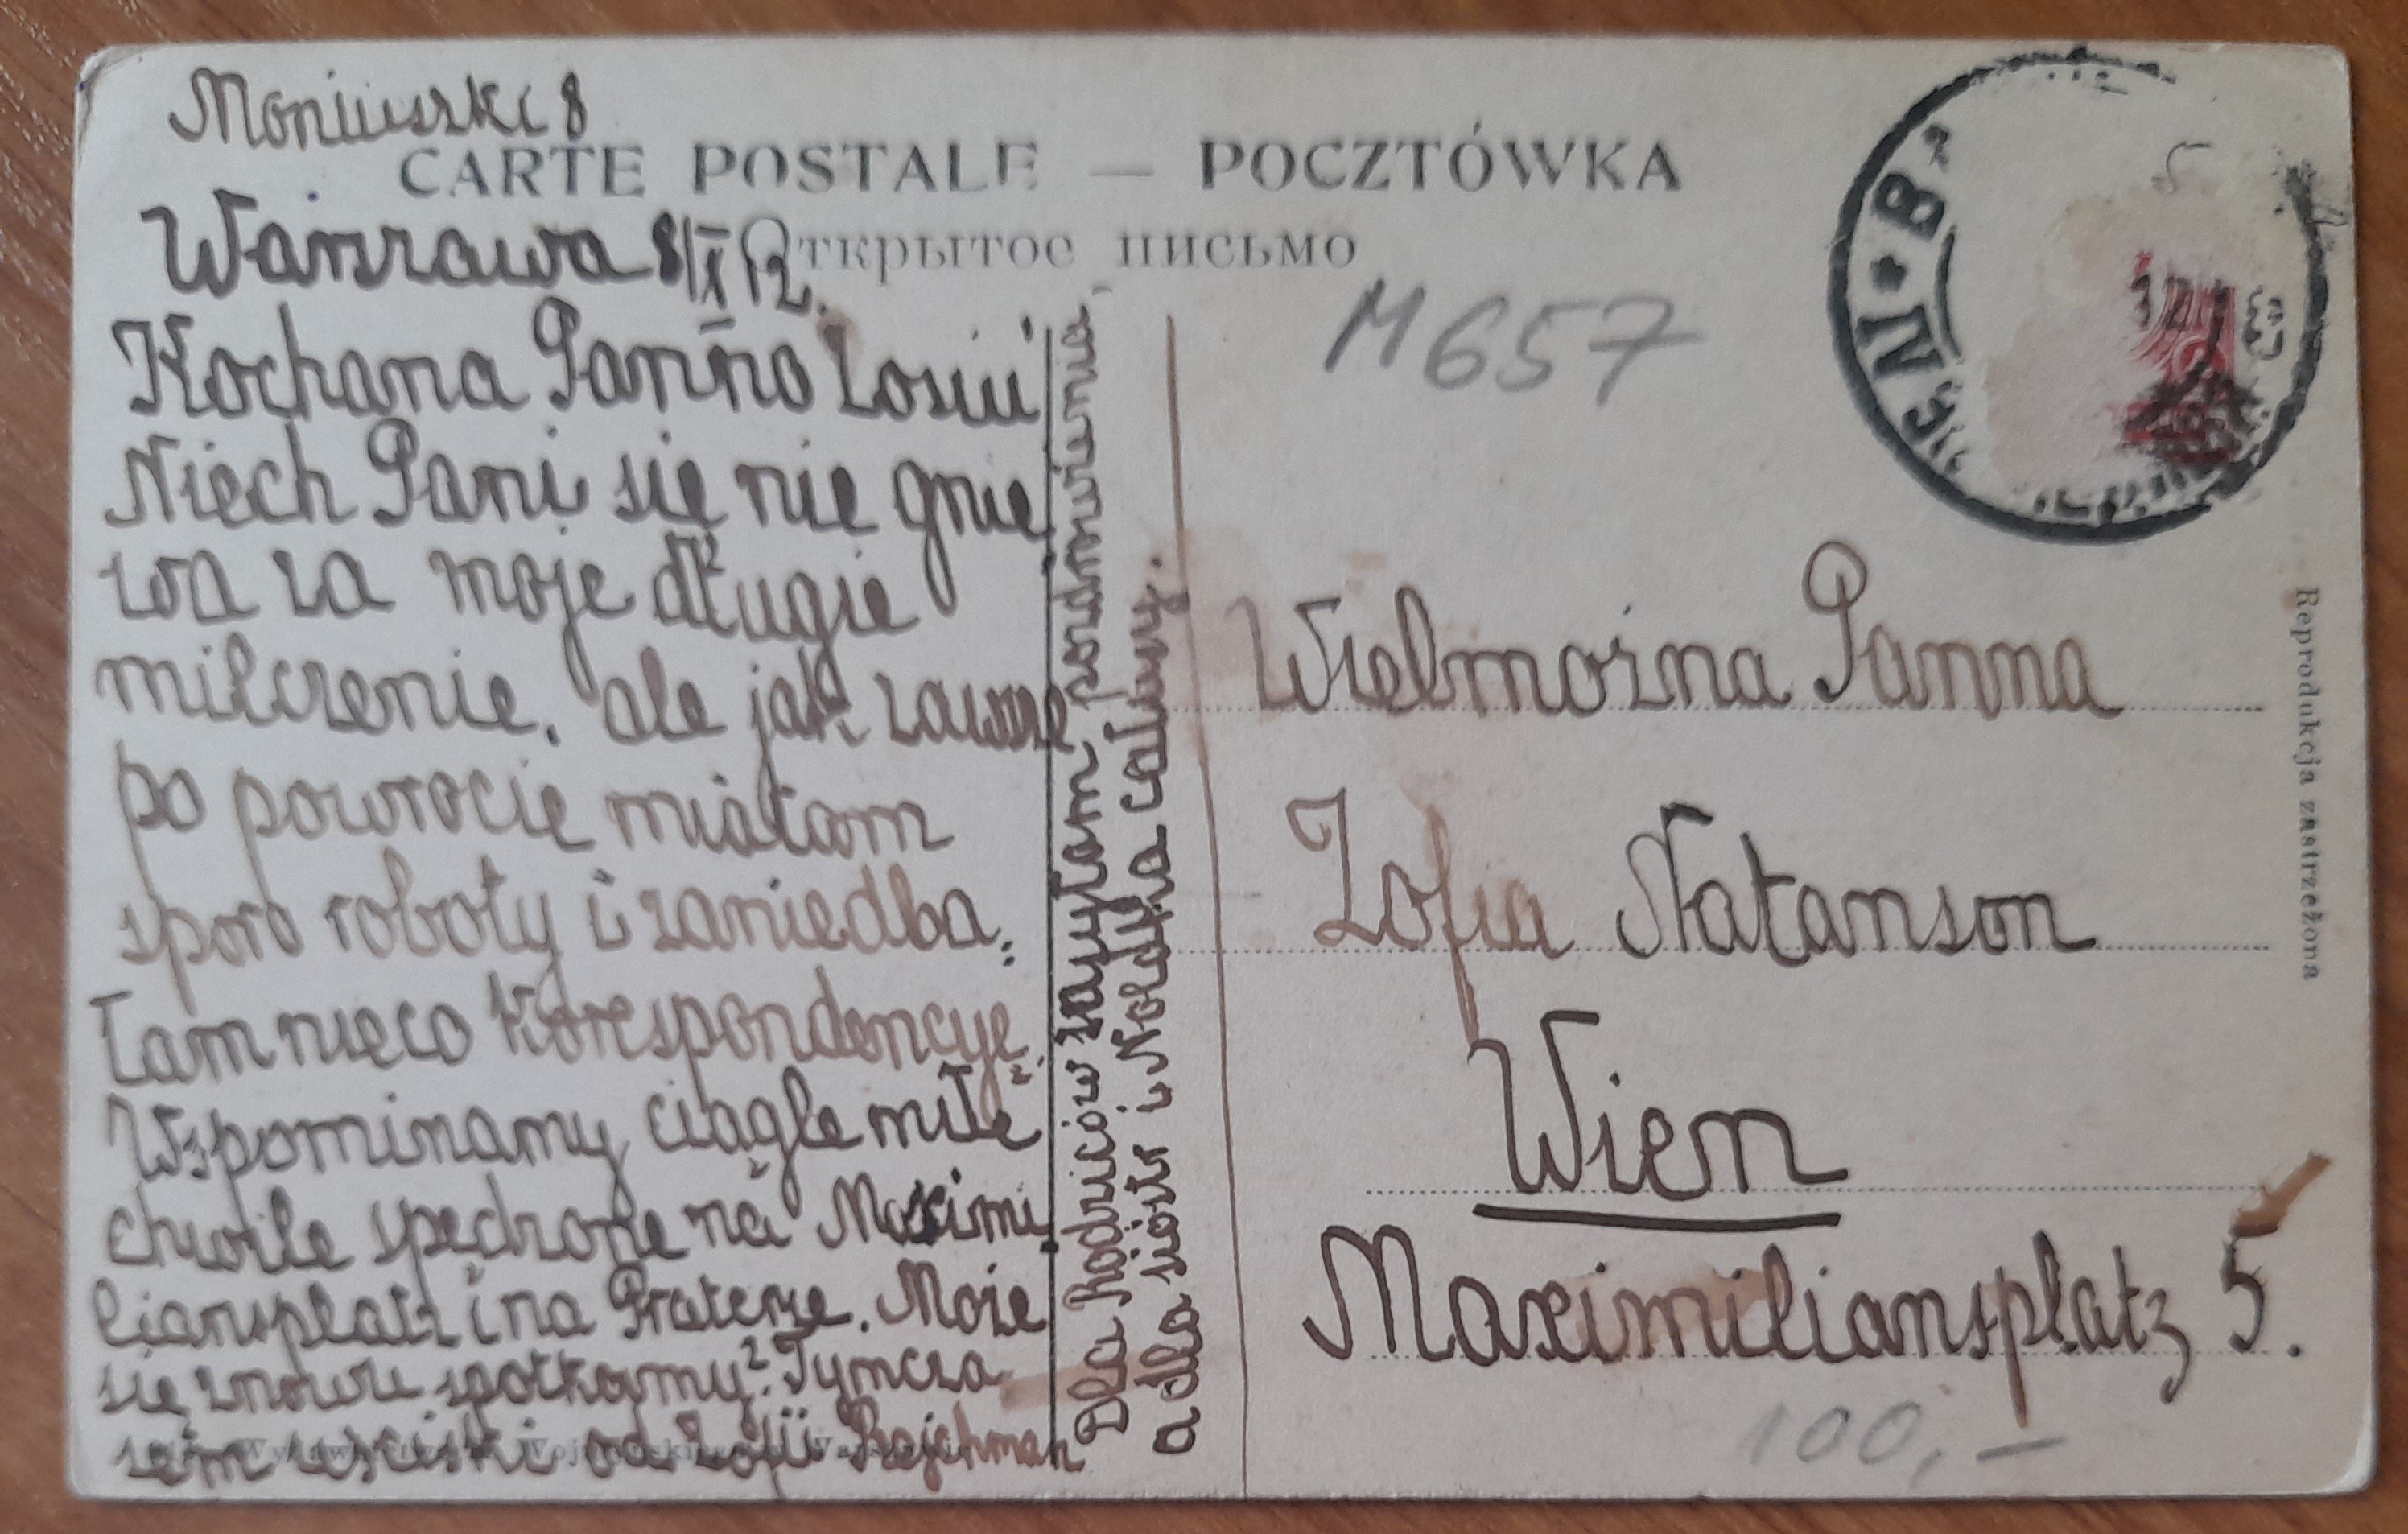 Moniuszki 8
CARTE POSTALE — POCZTÓWKA
Открытое письмо
Warszawa 8/X 12.
Kochana Panno Zosiu!
Niech Pani się nie gnie
wa za moje długie
milczenie, ale jak zawsze
po powrocie miałam
sporo roboty i zaniedba:
łam nieco korespondencyę.
Wspominamy ciągle miłe
chwile spędzone na Maximi
liansplatz i na Praterze. Może
się znowu spotkamy? Tymcza
sem uściski od Zofii Rajchman
Dla Rodziców zasyłam pozdrowienia,
a dla sióstr i Noldka całusy.
M657
Wielmożna Panna
Zofia Natanson
Wien
Maximiliansplatz 5.
100,—
Reprodukcja zastrzeżona